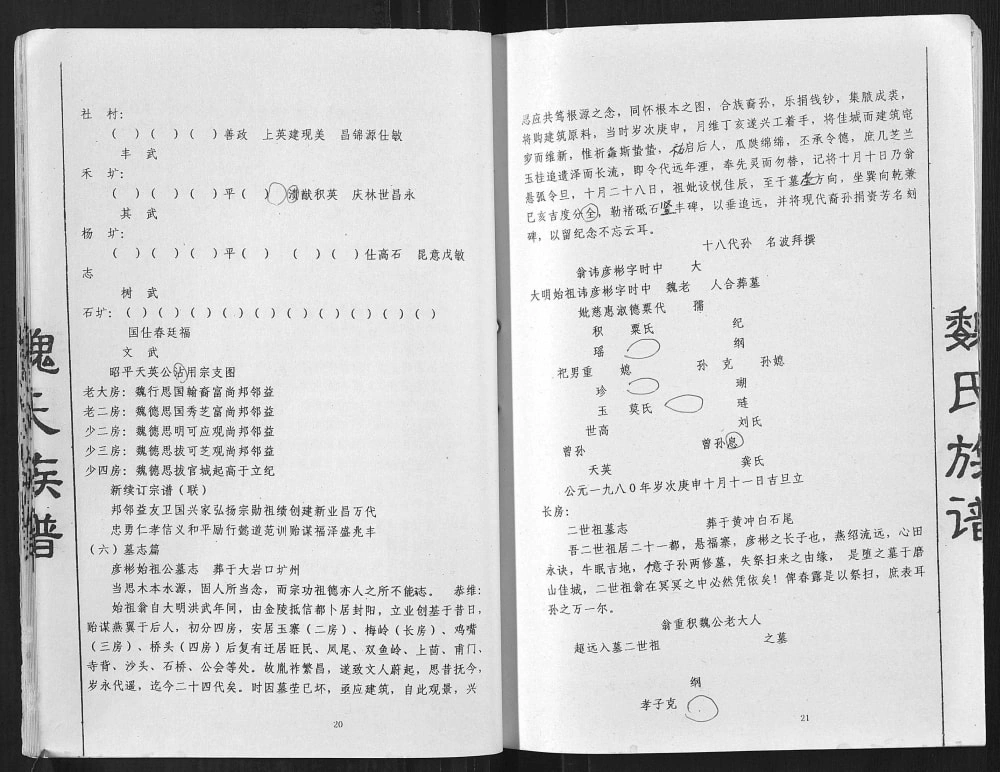 社　村：
（　）（　）（　）善政　上英建现美　昌锦源仕敏
丰　武
禾　圹：
（　）（　）（　）平（　）　献积英　庆林世昌永
其　武
杨　圹：
（　）（　）（　）平（　）　（　）（　）仕高石　昆意戊敏
志
树　武
石圹：（　）（　）（　）（　）（　）（　）（　）（　）（　）（　）
国仕春廷福
文　武
昭平天英公沿用宗支图
老大房：魏行思国翰裔富尚邦邻益
老二房：魏德思国秀芝富尚邦邻益
少二房：魏德思明可应观尚邦邻益
少三房：魏德思拔可芝观尚邦邻益
少四房：魏德思拔官城起高于立纪
新续订宗谱（联）
邦邻益友卫国兴家弘扬宗勋祖绩创建新业昌万代
忠勇仁孝信义和平励行懿道范训贻谋福泽盛兆丰
（六）墓志篇
彦彬始祖公墓志　葬于大岩口圹州
当思木本水源，固人所当念，而宗功祖德亦人之所不能志。　恭维：
始祖翁自大明洪武年间，由金陵抵信都卜居封阳，立业创基于昔日，
贻谋燕翼于后人，初分四房，安居玉寨（二房）、梅岭（长房）、鸡嘴
（三房）、桥头（四房）后复有迁居旺民、凤尾、双鱼岭、上茴、甫门、
寺背、沙头、石桥、公会等处。故胤祚繁昌，遂致文人蔚起，思昔抚今，
岁永代遥，迄今二十四代矣。时因墓茔已坏，亟应建筑，自此观景，兴
20
忌应共笃根源之念，同怀根本之图，合族裔孙，乐捐钱钞，集腋成裘，
将购建筑原料，当时岁次庚申，月维丁亥遂兴工着手，将佳城而建筑窀
穸而维新，惟祈螽斯蛰蛰，祐启后人，瓜瓞绵绵，丕承令德，庶几芝兰
玉桂追遗泽而长流，即令代远年湮，奉先灵而勿替，记将十月十日乃翁
悬弧令旦，十月二十八日，祖妣设悦佳辰，至于墓茔方向，坐巽向乾兼
巳亥吉度分全，勒褚砥石竖丰碑，以垂追远，并将现代裔孙捐资芳名刻
碑，以留纪念不忘云耳。
十八代孙　名波拜撰
翁讳彦彬字时中　　大
大明始祖讳彦彬字时中　魏老　人合葬墓
妣慈惠淑德粟代　孺
积　粟氏　　纪
瑶　　纲
祀男重　媳　　孙　克　孙媳
珍　　瑚
玉　莫氏　　琏
世高　　刘氏
曾孙　　曾孙息
天英　　龚氏
公元一九八〇年岁次庚申十月十一日吉旦立
长房：
二世祖墓志　　葬于黄冲白石尾
吾二世祖居二十一都，悬福寨，彦彬之长子也，燕绍流远，心田
永诀，牛眠吉地，意子孙两修墓，失祭扫来之由缘，是堕之墓于磨
山佳城，二世祖翁在冥冥之中必然凭依矣！俾春露是以祭扫，庶表耳
孙之万一尔。
翁重积魏公老大人
超远入墓二世祖　　之墓
纲
孝子克
21
魏氏族谱
魏氏族谱